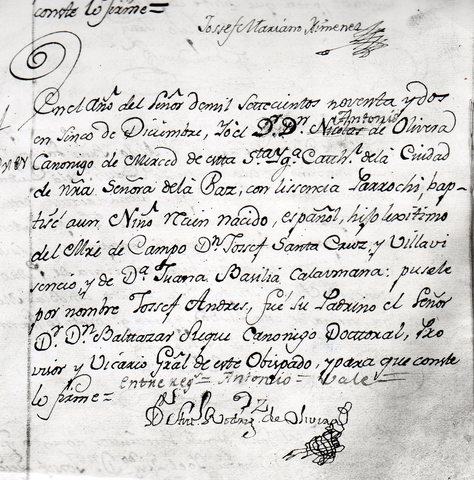 conste lo firme=
Jossef Mariano Ximenez
En el Año del Señor de mil setecientos noventa y dos
en sinco de Diciembre, Yo el Dr. Dn. Nicolas Antonio de Olivera
Canonigo de Merced de esta Sta. Yga. Cathl. de la Ciudad
de nra. Señora de la Paz, con lissencia Parrochi bap-
tisé a un Niño recin nacido, español, hijo lexitimo
del Mre de Campo Dn. Jossef Santa Cruz, y Villavi
sencio, y de Da. Juana Basilia Calaumana: pusele
por nombre Jossef Andres, fué su Padrino el Señor
Dr. Dn. Baltazar Canonigo Doctoral, Pro
visor y Vicario Gral de este Obispado, y para que conste
lo firme= Entre regs. = Antonio = Vale =
Dr. Ant. Rodrig. de Olivera